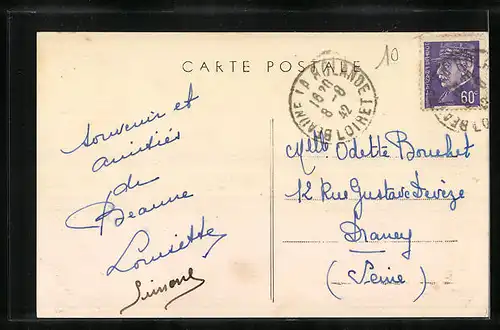 10
CARTE POSTALE
BEAUNE LA ROLANDE
16 20
8 -8
42
LOIRET
60c
Souvenir et
amitiés
de
Beaune
Louisette
Simone
Melle Odette Bouchet
12 Rue Gustave Devèze
Drancy
(Seine)